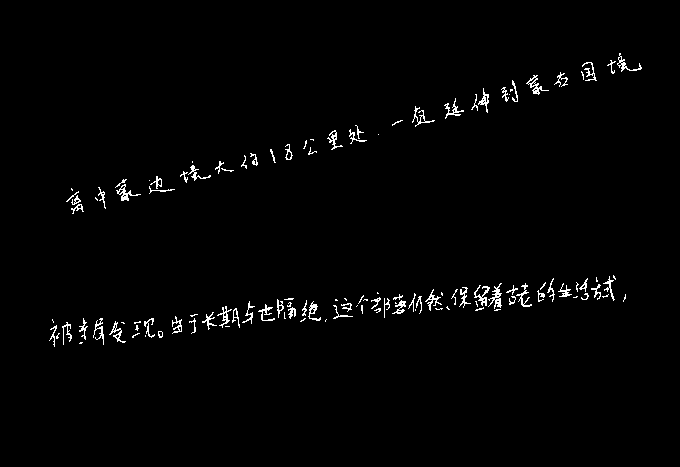 离中蒙边境大约18公里处,一直延伸到蒙古国境
被发现。由于长期与世隔绝,这个部落仍然保留着古老的生活方式,